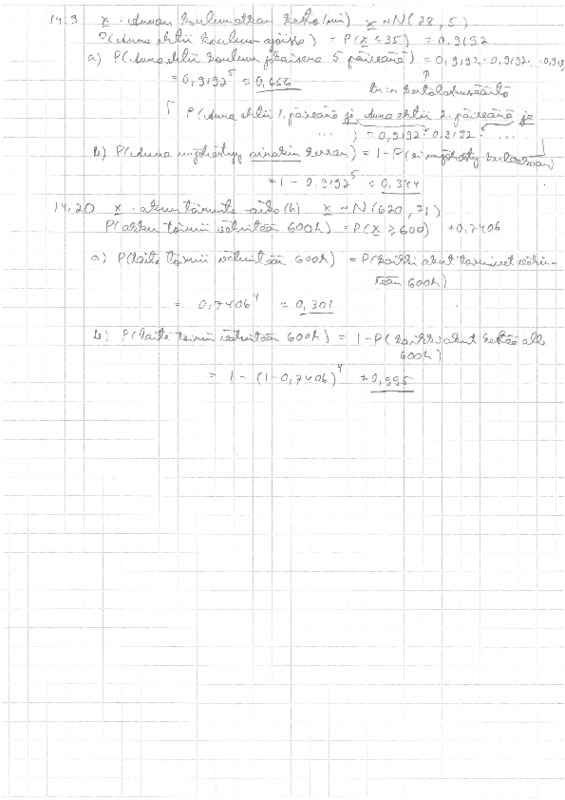 14.9 X = Annan koulumatkan kesto (min) X ~ N(28, 5)
P(Anna ehtii kouluun ajoissa) = P(X ≤ 35) = 0,9192
a) P(Anna ehtii kouluun jokaisena 5 päivänä) = 0,9192 · 0,9192 · ... · 0,919
= 0,9192⁵ ≈ 0,656
kertolaskusääntö
P(Anna ehtii 1. päivänä ja Anna ehtii 2. päivänä ja
...) = 0,9192 · 0,9192 · ...
b) P(Anna myöhästyy ainakin kerran) = 1 - P(ei myöhästy kertaakaan)
= 1 - 0,9192⁵ ≈ 0,344
14.20 X = akun toiminta-aika (h) X ~ N(620, 31)
P(akku toimii vähintään 600h) = P(X ≥ 600) = 0,7406
a) P(laite toimii vähintään 600h) = P(kaikki akut toimivat vähin-
tään 600h)
= 0,7406⁴ ≈ 0,301
b) P(laite toimii vähintään 600h) = 1 - P(kaikki akut kestää alle
600h)
= 1 - (1 - 0,7406)⁴ ≈ 0,995